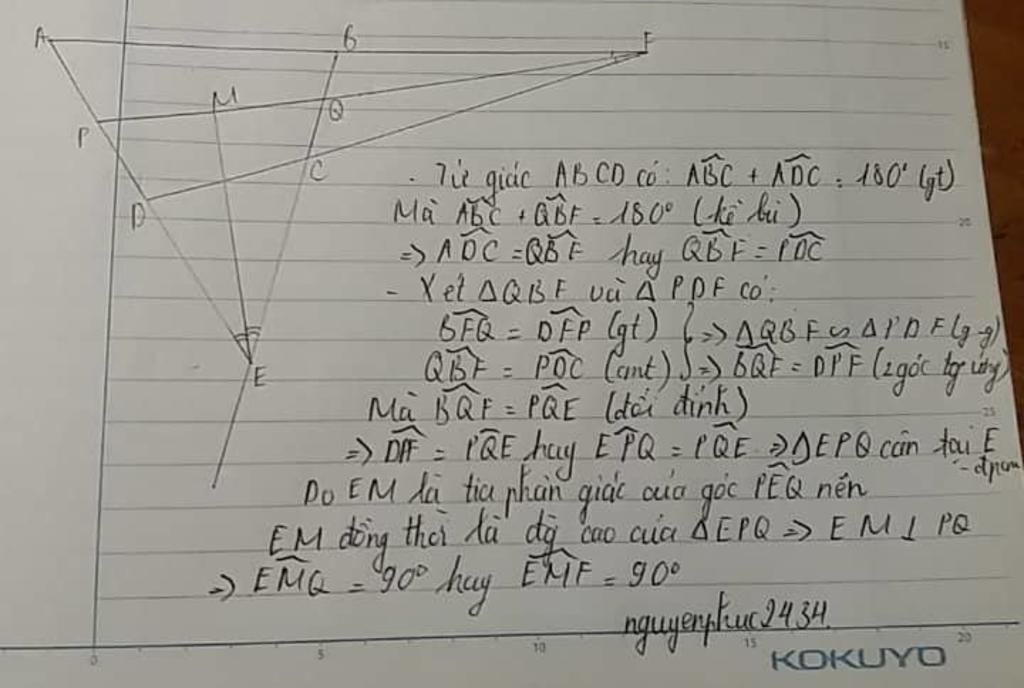 A B F
M
P Q
C
D
E
- Tứ giác ABCD có: ABC + ADC = 180° (gt)
Mà ABC + QBF = 180° (kề bù)
=> ADC = QBF hay QBF = PDC
- Xét ΔQBF và ΔPDF có:
BFQ = DFP (gt) } => ΔQBF ∽ ΔPDF (g-g)
QBF = PDC (cmt) } => BQF = DPF (2 góc tg ứng)
Mà BQF = PQE (đối đỉnh)
=> DPF = PQE hay EPQ = PQE => ΔEPQ cân tại E
- đpcm
Do EM là tia phân giác của góc PEQ nên
EM đồng thời là đg cao của ΔEPQ => EM ⊥ PQ
=> EMQ = 90° hay EMF = 90°
nguyenphuc2434.
KOKUYO
0 5 10 15 20
15
20
25